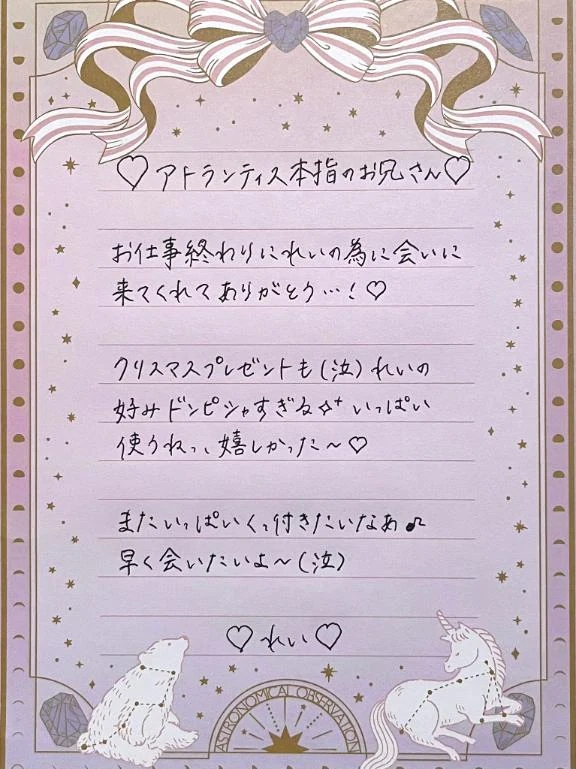 ♡アトランティス本指のお兄さん♡
お仕事終わりにれいの為に会いに
来てくれてありがとう…!♡
クリスマスプレゼントも(泣)れいの
好みドンピシャすぎる✧⁺いっぱい
使うねっ、嬉しかった〜♡
またいっぱいくっ付きたいなあ♫
早く会いたいよ〜(泣)
♡れい♡
ASTRONOMICAL OBSERVATION